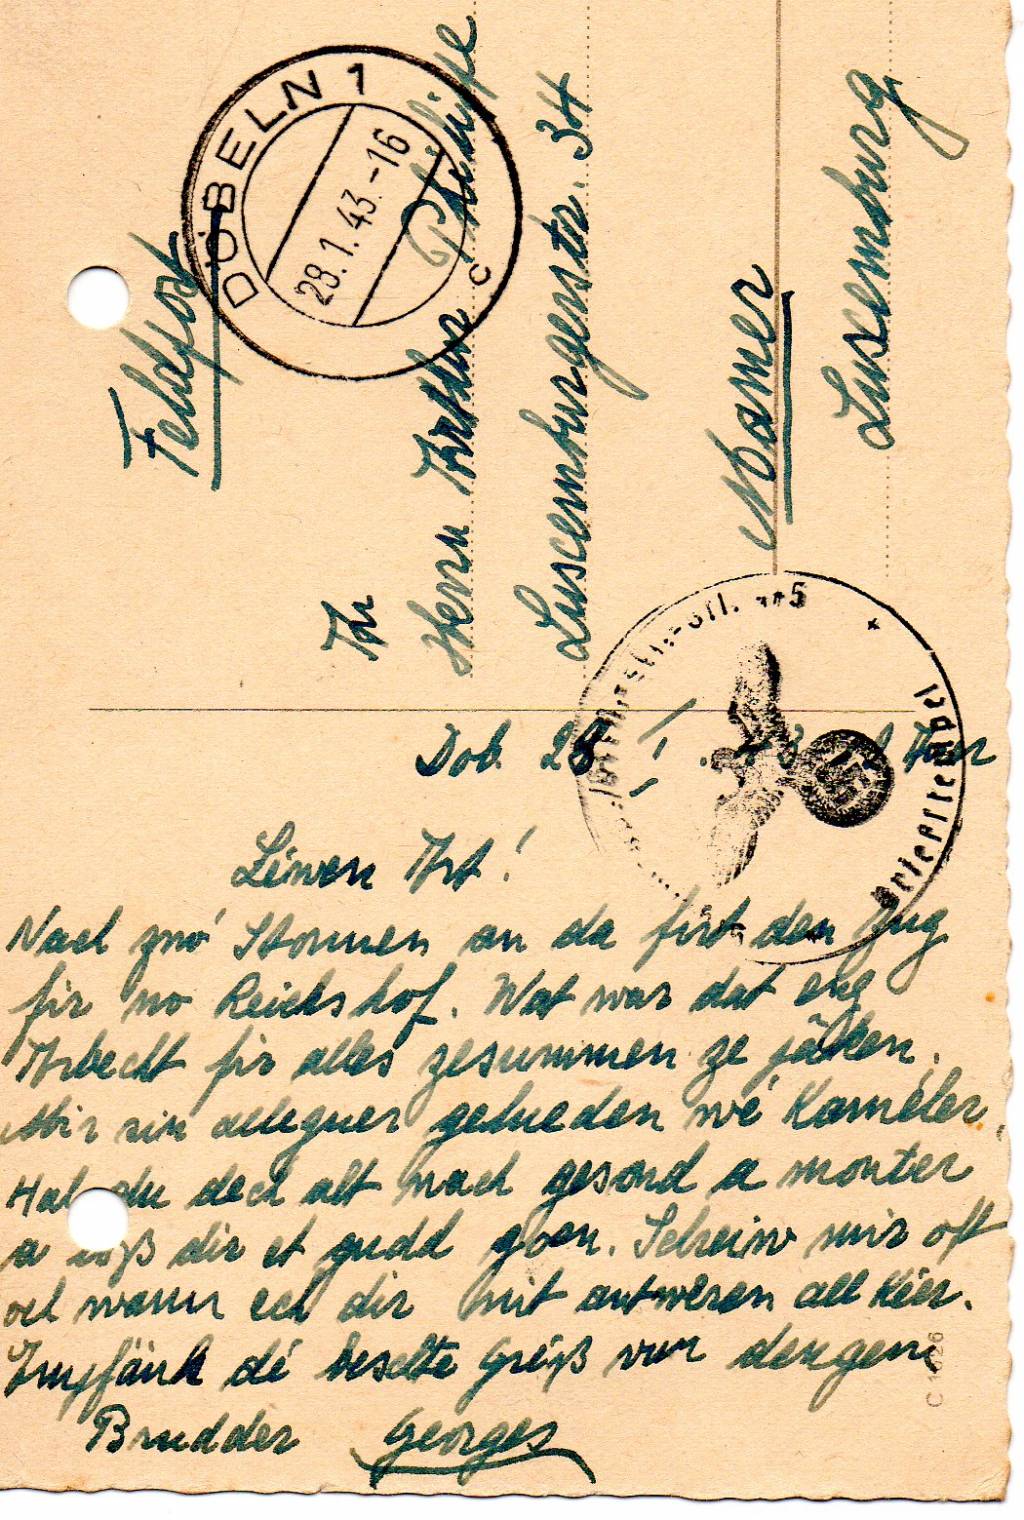 Feldpost
DÖBELN 1
28.1.43.-16
c
An
Herrn Arthur Philippe
Luxemburgerstr. 34
Mamer
Luxemburg
Briefstempel
Döb. 28 I. 43 12 Uhr
Léiwen Art!
Nach zwó Stonnen an da firt den Zug
fir no Reichshof. Wat war dat eng
Arbecht fir alles zesummen ze jäken.
Mir sin alleguer gelueden wé Kaméler.
Hal du dech alt nach gesond a monter
a loß dir et gudd goen. Schreiw mir oft
och wann ech dir nit antweren all Kéer.
Empfänk dé beschte Gréiß vun dengem
Brudder Georges
C 1626